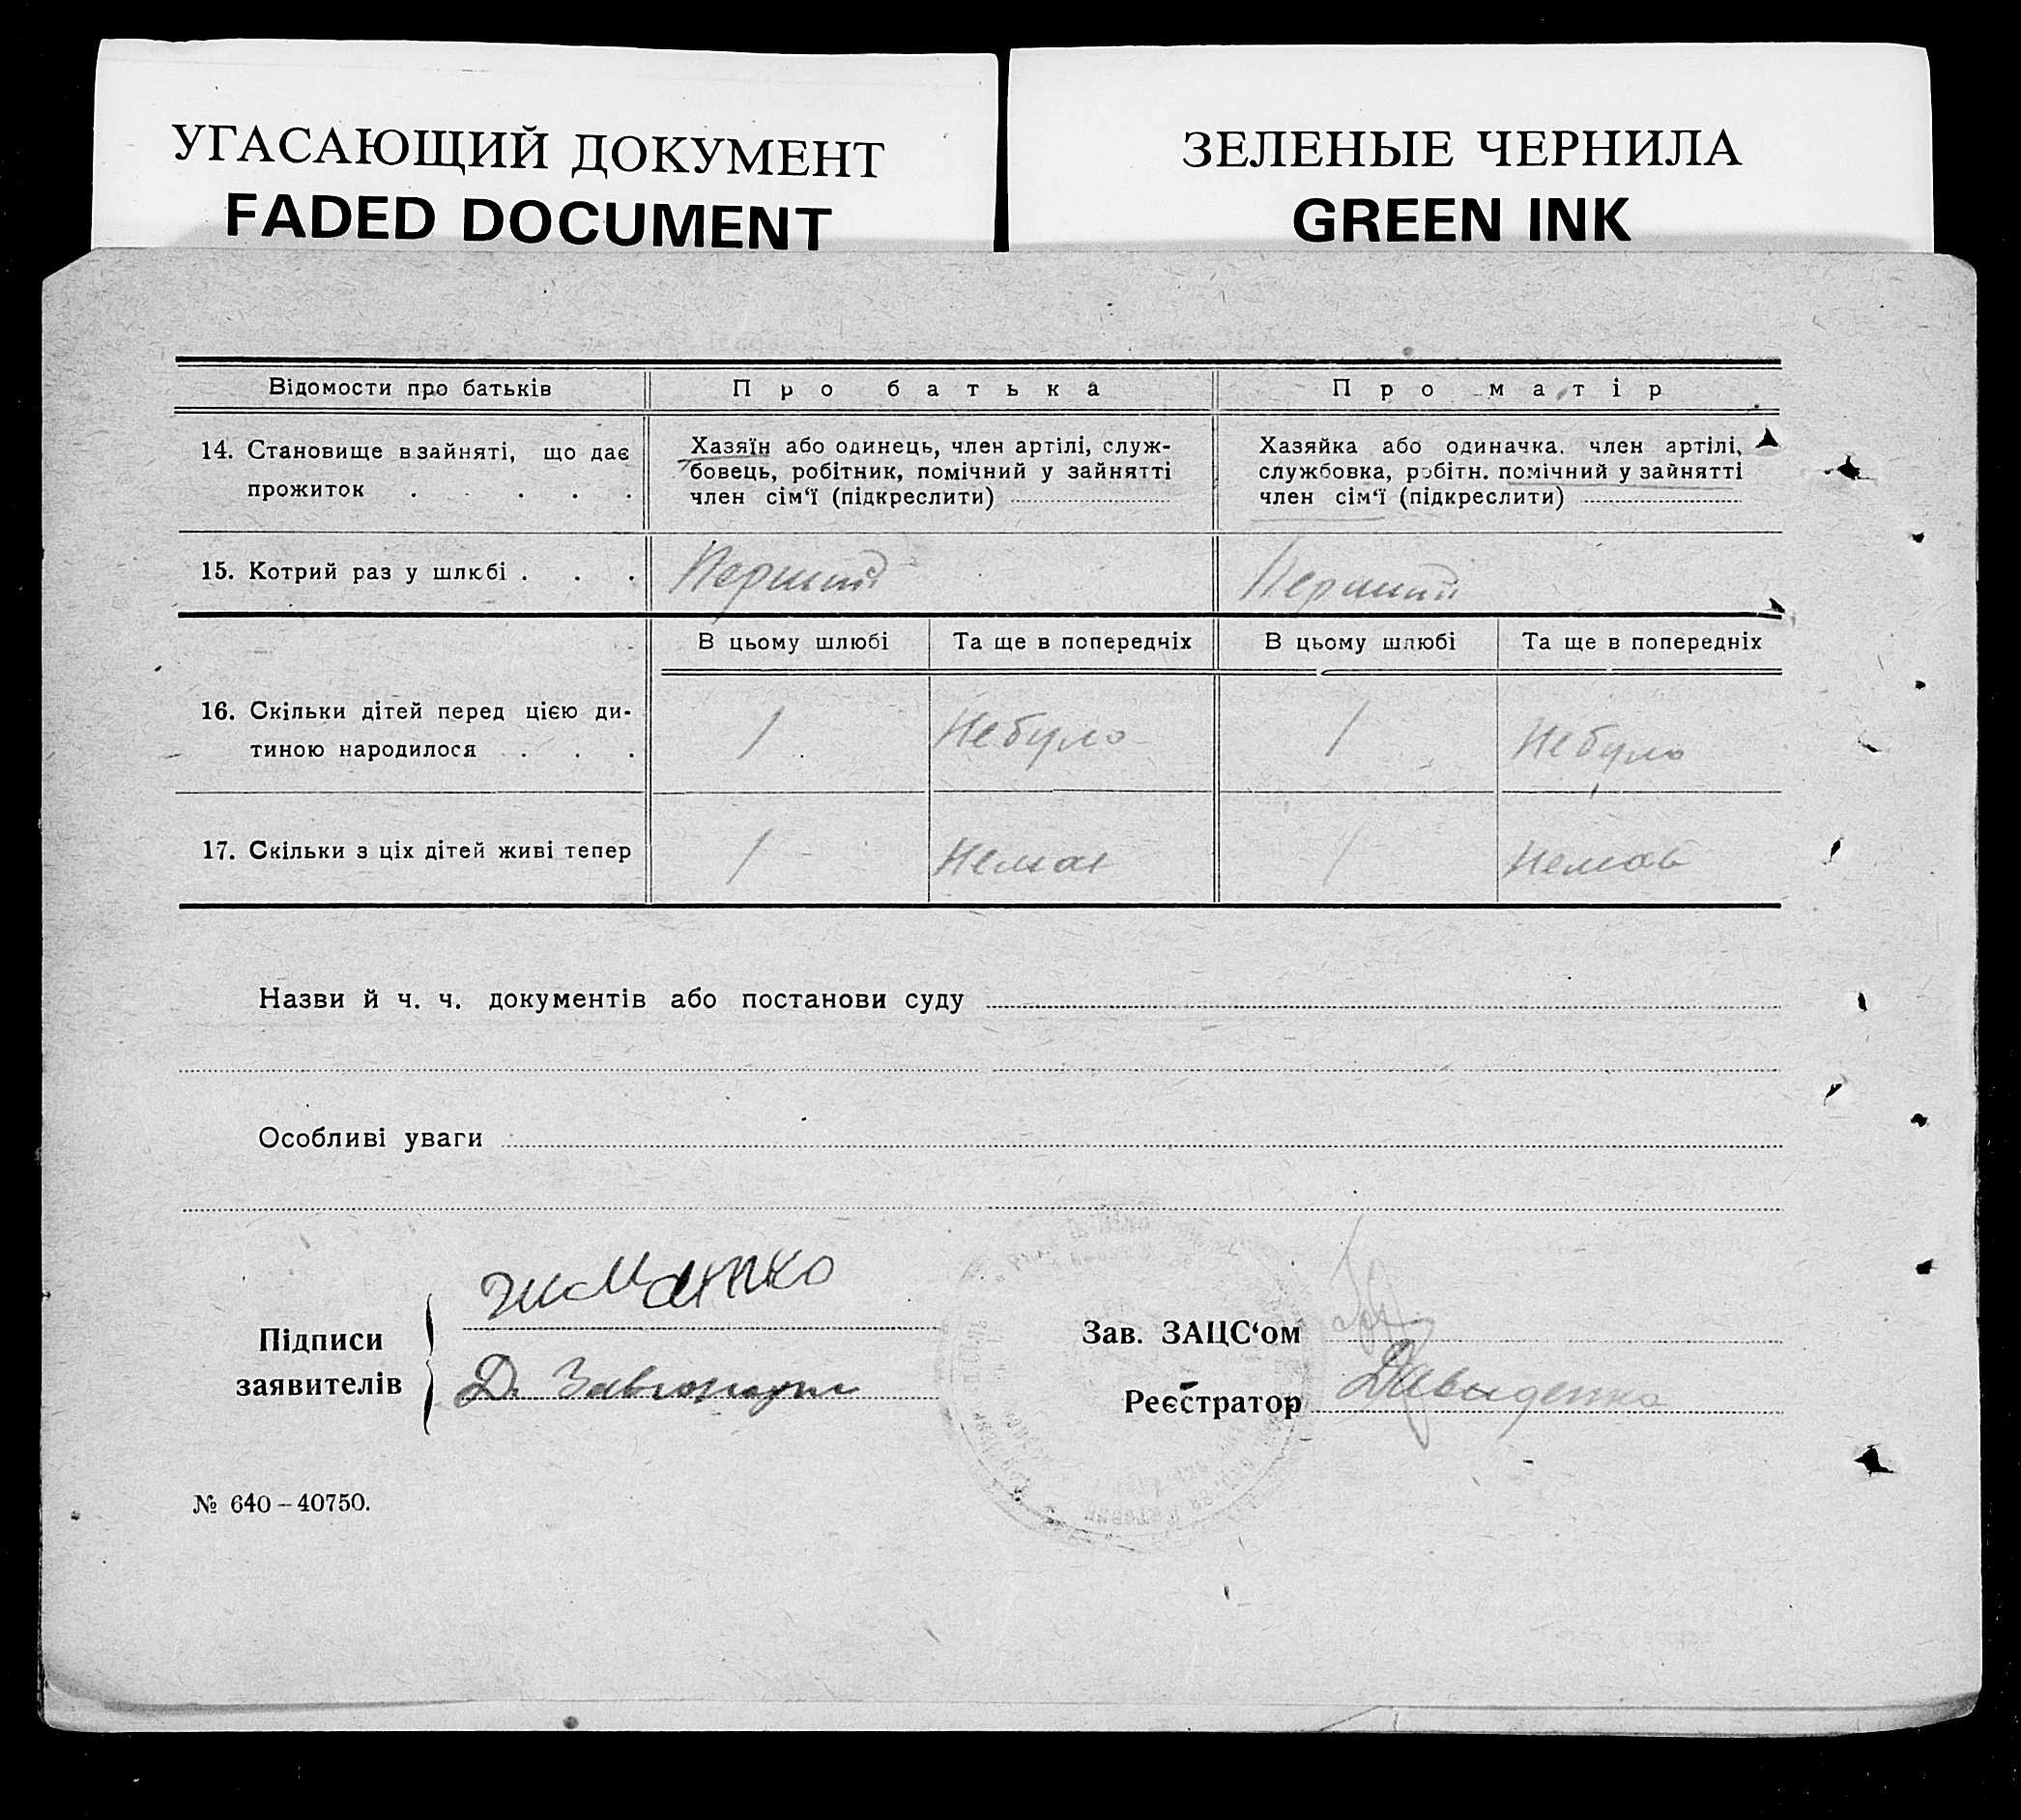 УГАСАЮЩИЙ ДОКУМЕНТ
FADED DOCUMENT
ЗЕЛЕНЫЕ ЧЕРНИЛА
GREEN INK
Відомости про батьків
Про батька
Про матір
14. Становище в зайняті, що дає
прожиток . . . . .
Хазяїн або одинець, член артілі, служ-
бовець, робітник, помічний у зайнятті
член сім‘ї (підкреслити)
Хазяйка або одиначка. член артілі,
службовка, робітн. помічний у зайнятті
член сім‘ї (підкреслити)
15. Котрий раз у шлюбі . . .
Перший
Перший
В цьому шлюбі
Та ще в попередніх
В цьому шлюбі
Та ще в попередніх
16. Скільки дітей перед цією ди-
тиною народилося . . .
1
Небуло
1
Небуло
17. Скільки з ціх дітей живі тепер
1
Немає
1
Немає
Назви й ч. ч. документів або постанови суду
Особливі уваги
Підписи
заявителів
Д.
Зав. ЗАЦС‘ом
Реєстратор
Давиденко
№ 640–40750.